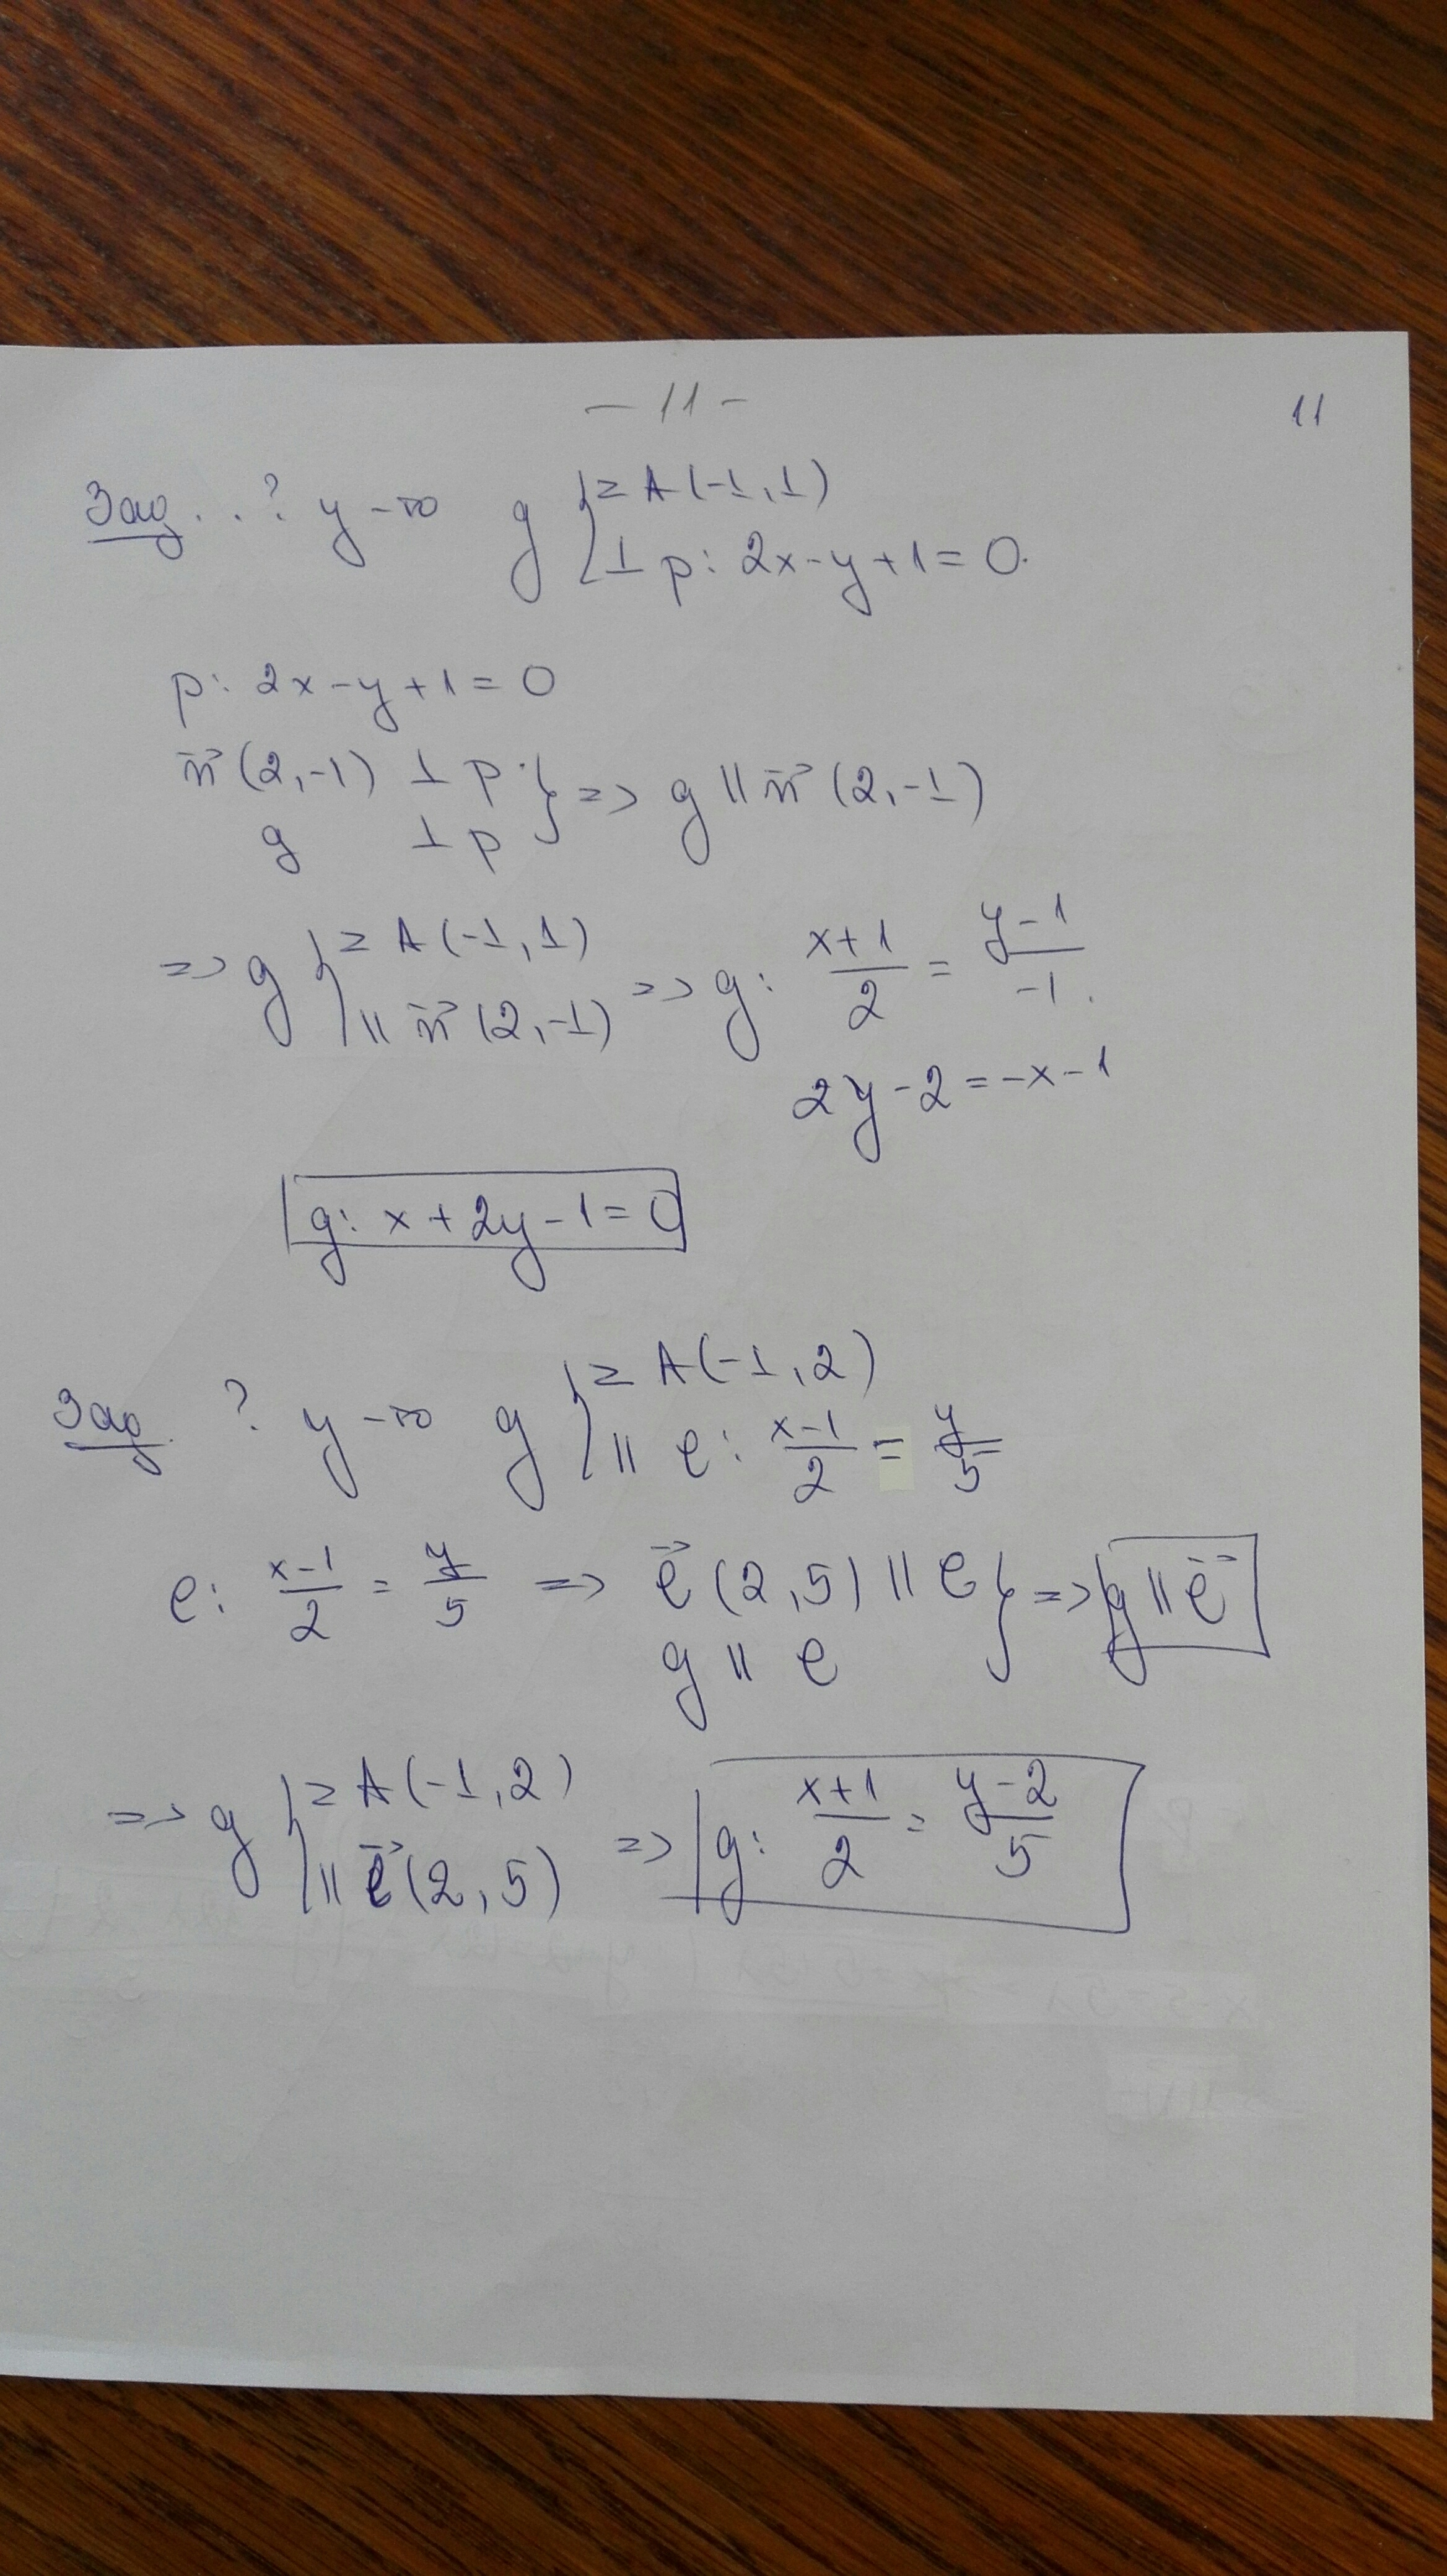 - 11 -
11
Зад. ..? у-то g { z A(-1,1)
⊥ p: 2x-y+1=0.
p: 2x-y+1=0
n⃗(2,-1) ⊥ p } => g || n⃗(2,-1)
g ⊥ p
=> g { z A(-1,1) => g: (x+1)/2 = (y-1)/-1.
|| n⃗(2,-1)
2y-2=-x-1
g: x+2y-1=0
Зад. ? у-то g { z A(-1,2)
|| e: (x-1)/2 = y/5
e: (x-1)/2 = y/5 => e⃗(2,5) || e } => g || e⃗
g || e
=> g { z A(-1,2) => g: (x+1)/2 = (y-2)/5
|| e⃗(2,5)